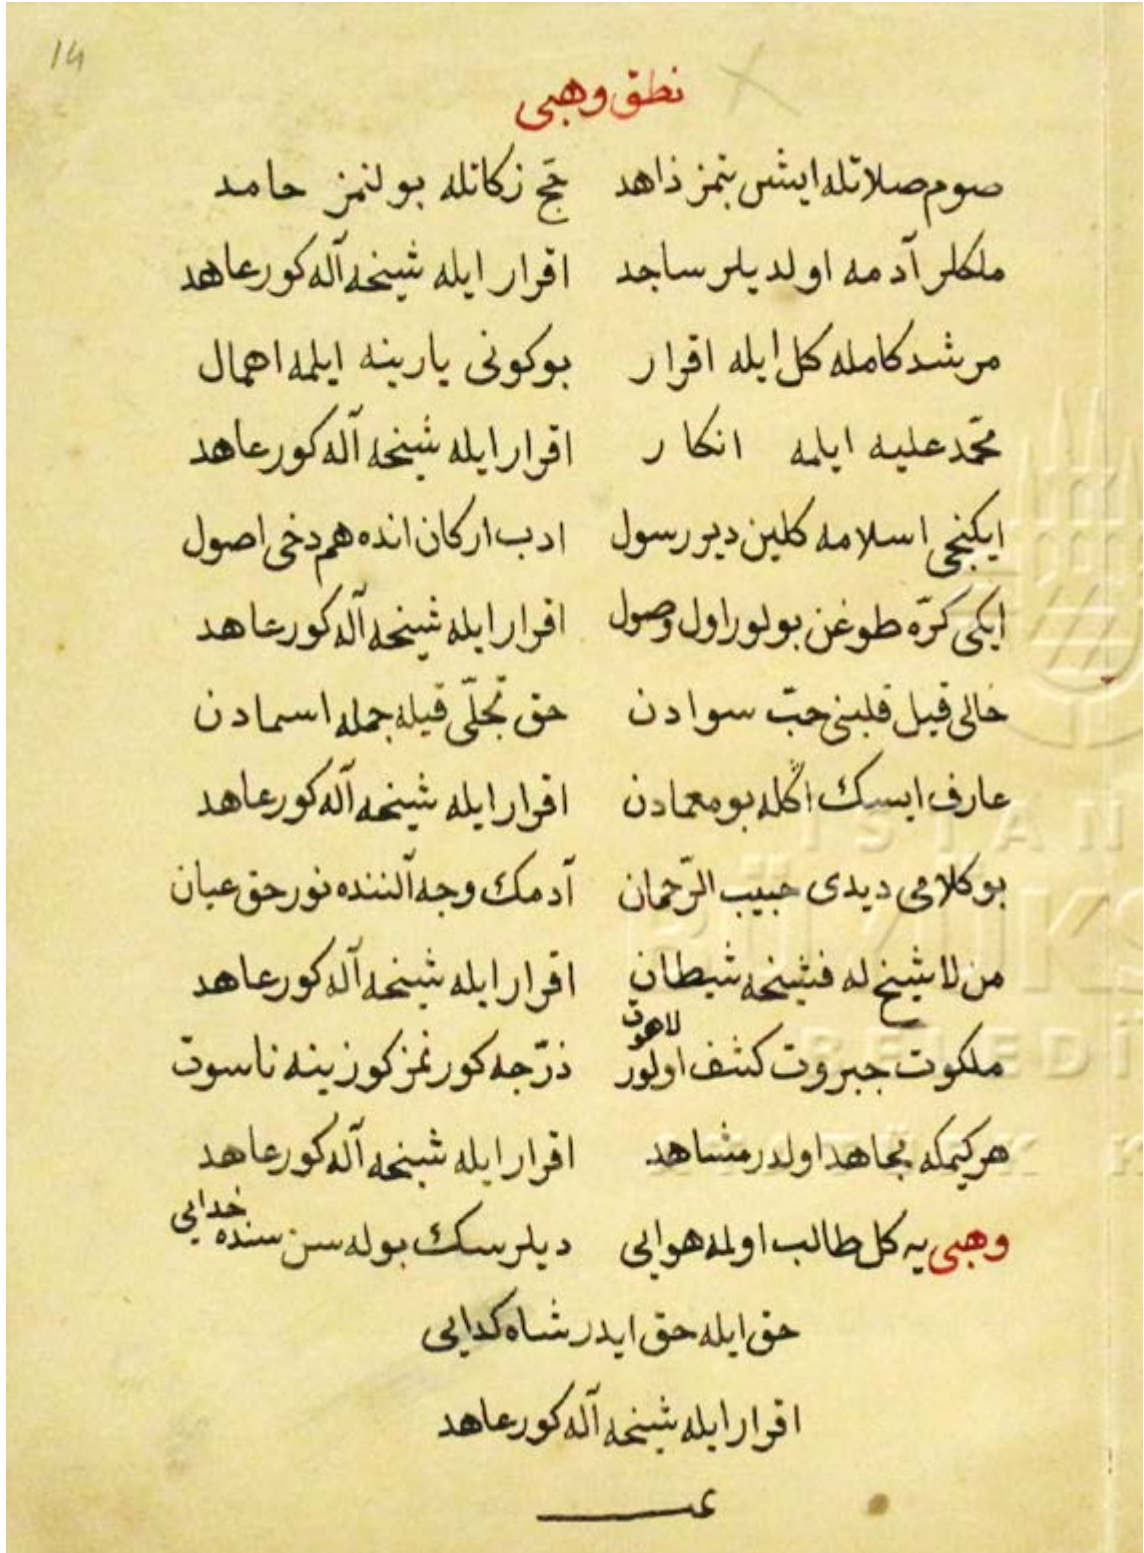 14
نطق وهبی
صوم صلاتله ایش بتمز ذاهد حج زكاتله بولنمز حامد
ملكلر آدمه اولدیلر ساجد اقرار ایله شیخه آله كور عاهد
مرشد كامله كل ایله اقرار بوكونی یارینه ایلمه اهمال
محمّد علیه ایلمه انكار اقرار ایله شیخه آله كور عاهد
ایكنجی اسلامه كلین دیر رسول ادب اركان انده هم دخی اصول
ایكی كرّه طوغن بولور اول وصول اقرار ایله شیخه آله كور عاهد
خالی قیل قلبنی حبّ سوادن حق تجلّی قیله جمله اسمادن
عارف ایسك اكله بو معمادن اقرار ایله شیخه آله كور عاهد
بو كلامی دیدی حبیب الرّحمان آدمك وجه آلننده نور حق عیان
من لا شیخ له فشیخه شیطان اقرار ایله شیخه آله كور عاهد
ملكوت جبروت كشف اولور لاهوت ذرّجه كورنمز كوزینه ناسوت
هر كیمكه مجاهد اولدر مشاهد اقرار ایله شیخه آله كور عاهد
وهبی یه كل طالب اولمه هوایی دیلرسك بوله سن سنده خدایی
حق ایله حق ایدر شاه كدایی
اقرار ایله شیخه آله كور عاهد
ISTAN
BELEDİ